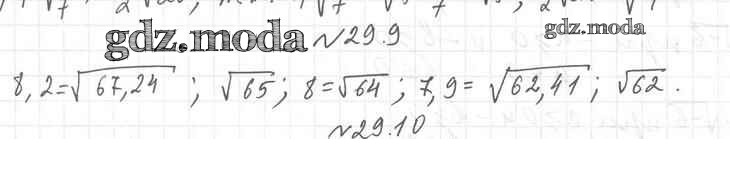 gdz.moda №29.9 gdz.moda
8,2=√67,24; √65; 8=√64; 7,9=√62,41; √62.
№29.10